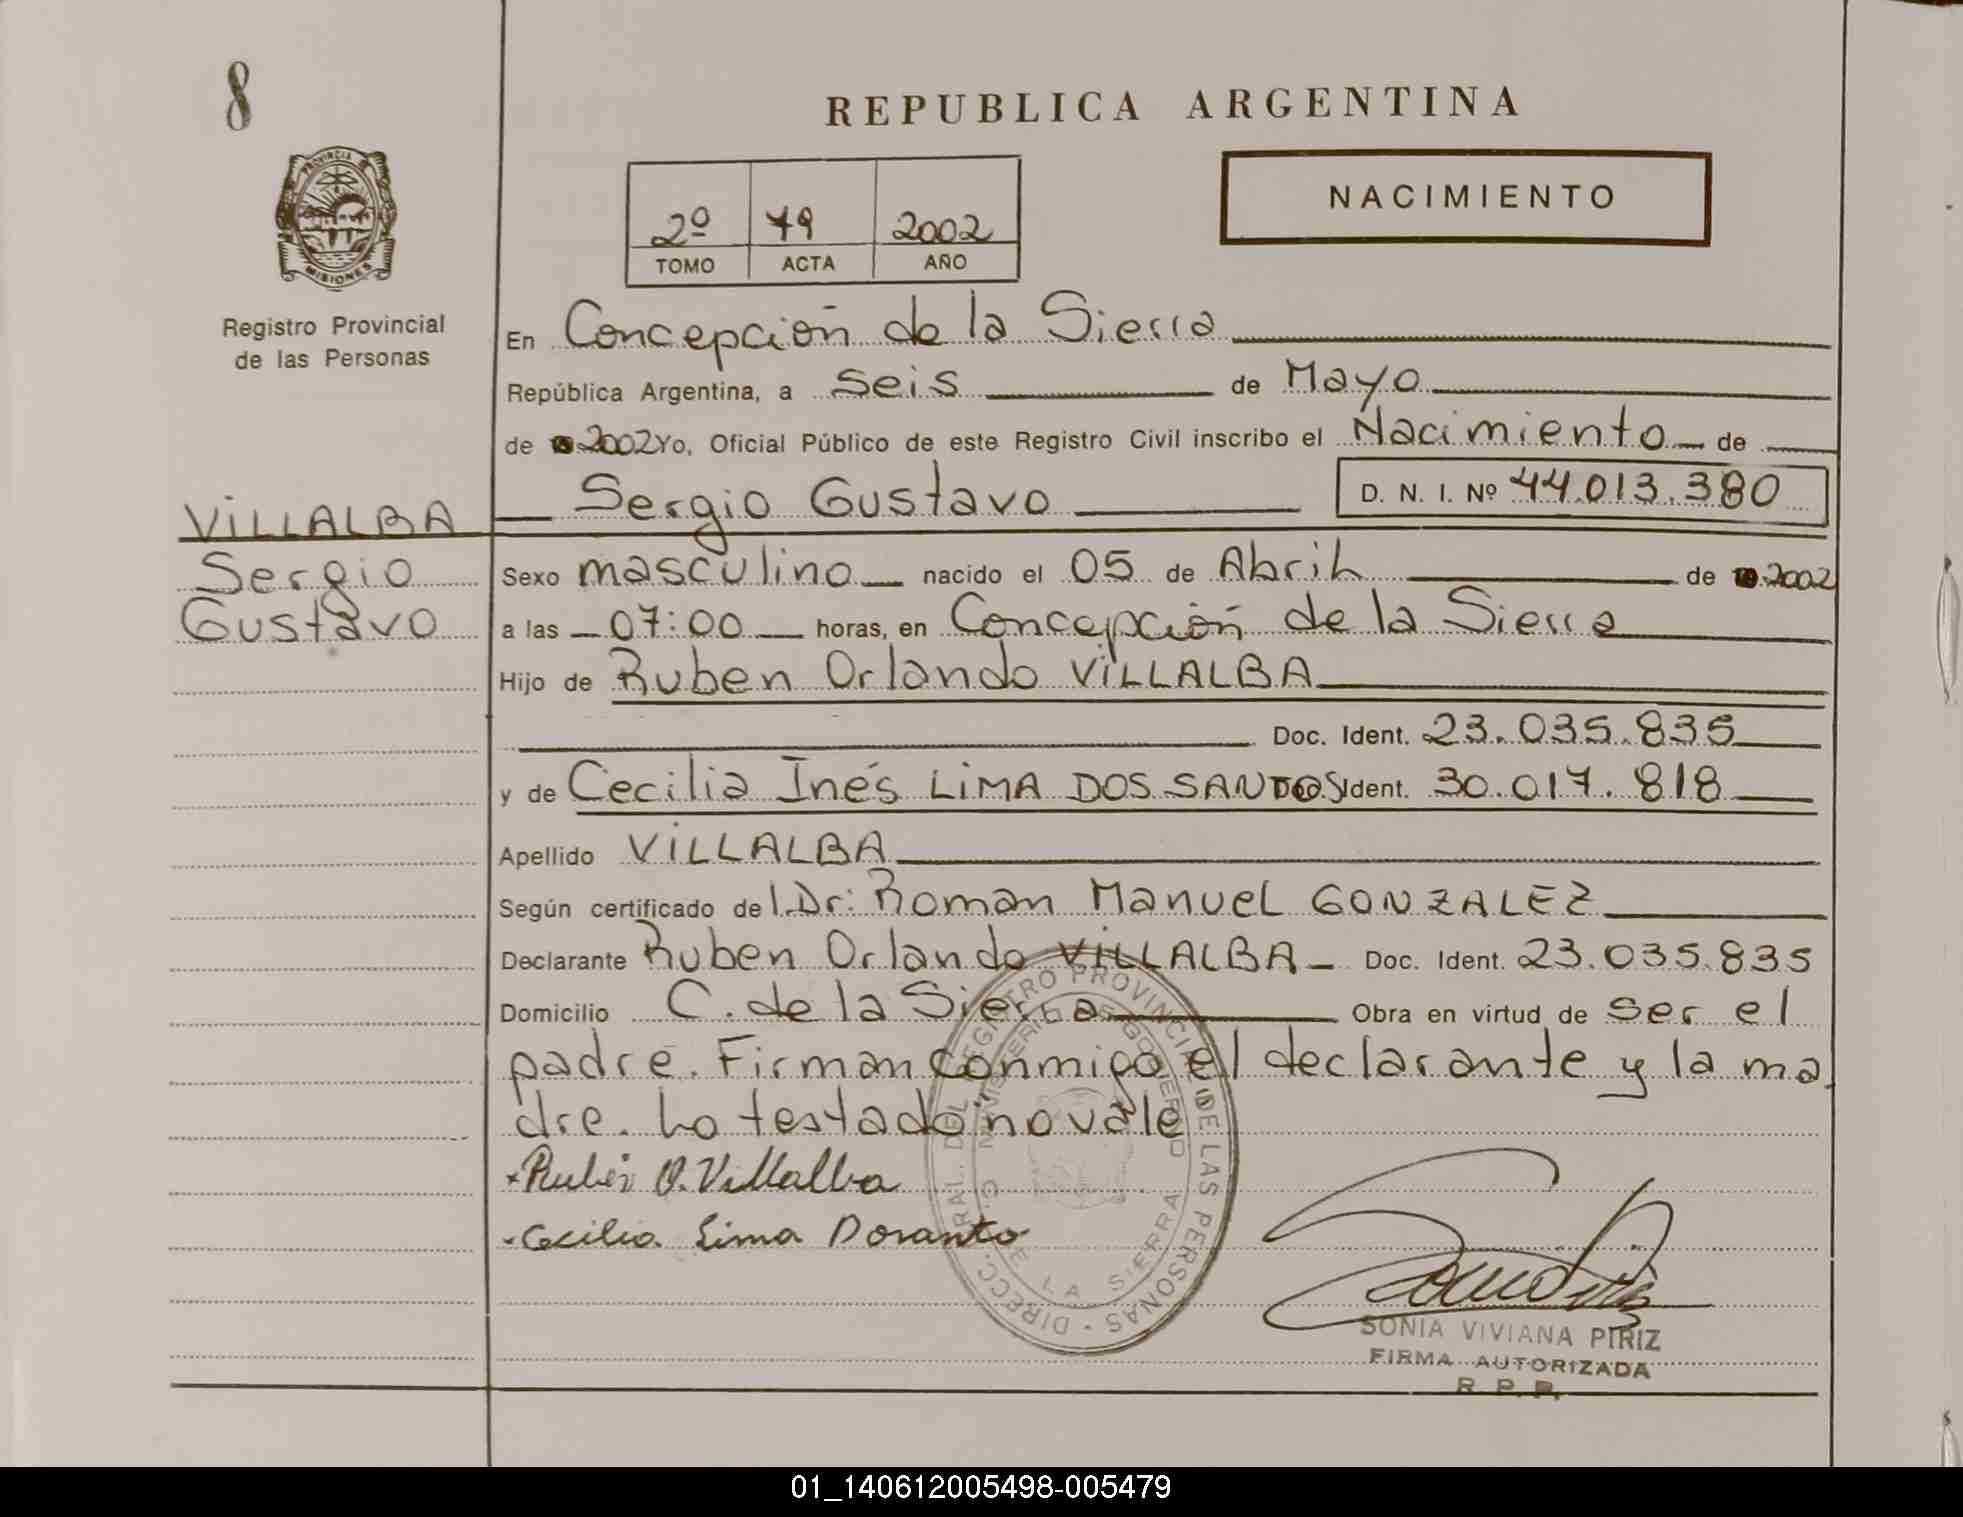 8
REPUBLICA ARGENTINA
NACIMIENTO
2º 79 2002
TOMO ACTA AÑO
PROVINCIA DE
MISIONES
Registro Provincial
de las Personas
En Concepción de la Sierra
República Argentina, a seis de Mayo
de 2002 Yo, Oficial Público de este Registro Civil inscribo el Nacimiento de
Sergio Gustavo D. N. I. Nº 44.013.380
VILLALBA
Sergio
Gustavo
Sexo masculino nacido el 05 de Abril de 2002
a las 07:00 horas, en Concepción de la Sierra
Hijo de Ruben Orlando VILLALBA
Doc. Ident. 23.035.835
y de Cecilia Inés LIMA DOS SANTOS Ident. 30.017.818
Apellido VILLALBA
Según certificado del Dr: Roman Manuel GONZALEZ
Declarante Ruben Orlando VILLALBA Doc. Ident. 23.035.835
Domicilio C. de la Sierra Obra en virtud de ser el
padre. Firman conmigo el declarante y la ma
dre. Lo testado no vale
Rubén O. Villalba
Cecilia Lima Dosanto
DIRECC. GRAL. DEL REGISTRO PROVINCIAL DE LAS PERSONAS
MINISTERIO DE GOBIERNO
DE LA SIERRA
SONIA VIVIANA PIRIZ
FIRMA AUTORIZADA
R. P. P.
01_140612005498-005479